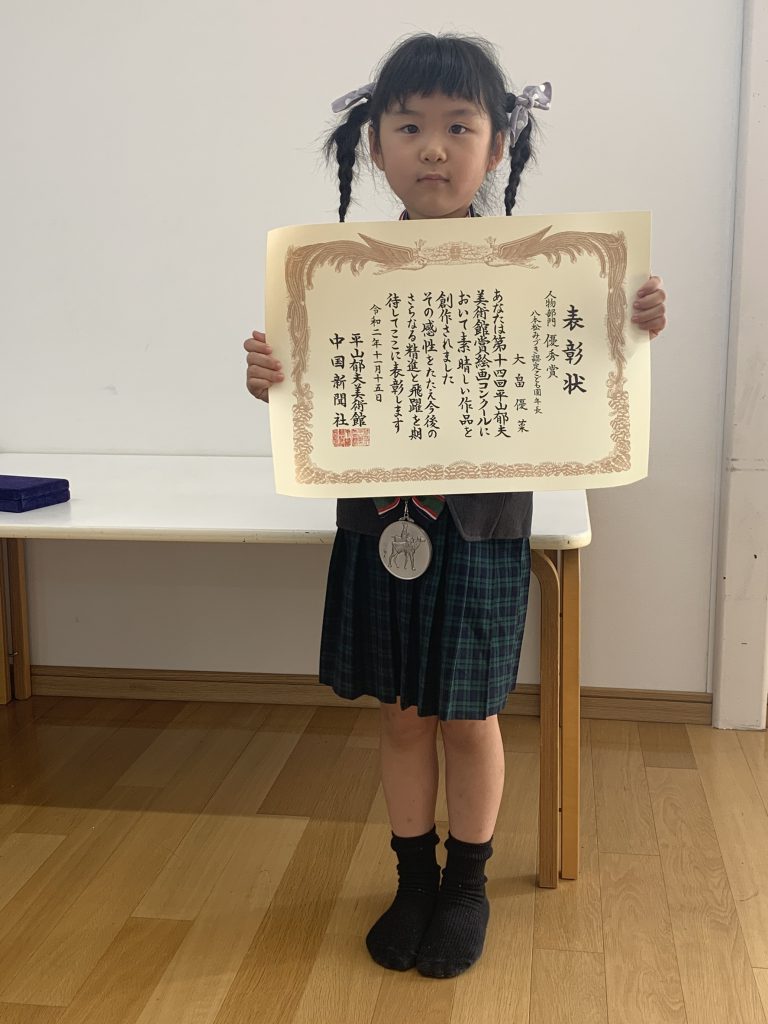 表彰状
人物部門 優秀賞
八本松みづき認定こども園年長
大畠優菜
あなたは第十四回平山郁夫
美術館賞絵画コンクールに
おいて素晴しい作品を
創作されました
その感性をたたえ今後の
さらなる精進と飛躍を期
待してここに表彰します
令和二年十一月十五日
平山郁夫美術館
中国新聞社